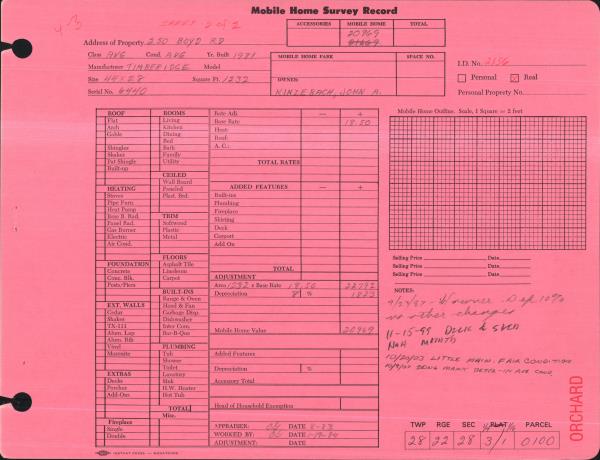 Mobile Home Survey Record
SHEET 2 of 2
ACCESSORIES MOBILE HOME TOTAL
20969
Address of Property 250 BOYD RD
Class AVG Cond. AVG Yr. Built 1981
Manufacturer TIMBERIDGE Model
Size 44x28 Square Ft. 1232
Serial No. 6440
MOBILE HOME PARK SPACE NO.
OWNER:
KINZEBACH, JOHN A.
I.D. No.
Personal Real
Personal Property No.
ROOF
Flat
Arch
Gable
Shingles
Shakes
Fat Shingly
Built-up
HEATING
Stoves
Pipe Furn.
Heat Pump
Base B. Rad.
Panel Rad.
Gas Burner
Electric
Air Cond.
FOUNDATION
Concrete
Conc. Blk.
Posts/Piers
EXT. WALLS
Cedar
Shakes
TX-111
Alum. Lap
Alum. Rib
Vinyl
Masonite
EXTRAS
Decks
Porches
Add-Ons
Fireplace
Single
Double
ROOMS
Living
Kitchen
Dining
Bed
Bath
Family
Utility
CEILED
Wall Board
Paneled
Plast. Brd.
TRIM
Softwood
Plastic
Metal
FLOORS
Asphalt Tile
Linoleum
Carpet
BUILT-INS
Range & Oven
Hood & Fan
Garbage Disp.
Dishwasher
Inter Com.
Bar-B-Que
PLUMBING
Tub
Shower
Toilet
Lavatory
Sink
H.W. Heater
Hot Tub
TOTAL
Misc.
Rate Adj. — +
Base Rate 18.50
Heat:
Roof:
A. C.:
TOTAL RATES
ADDED FEATURES — +
Built-ins
Plumbing
Fireplace
Skirting
Deck
Carport
Add On
TOTAL
ADJUSTMENT
Area 1232 x Base Rate 18.50 22792
Depreciation 8 % 1823
Mobile Home Value 20969
Added Features
Depreciation %
Accessory Total
Head of Household Exemption
APPRAISER: DATE 8-83
WORKED BY: DATE 1-19-84
ADJUSTMENT: DATE
Mobile Home Outline. Scale, 1 Square = 2 feet
Selling Price Date
Selling Price Date
Selling Price Date
NOTES:
no other changes
11-15-99 DECK & SHED
10/20/03 LITTLE MAIN. FAIR CONDITION
ORCHARD
TWP RGE SEC PLAT PARCEL
28 22 28 3/1 0100